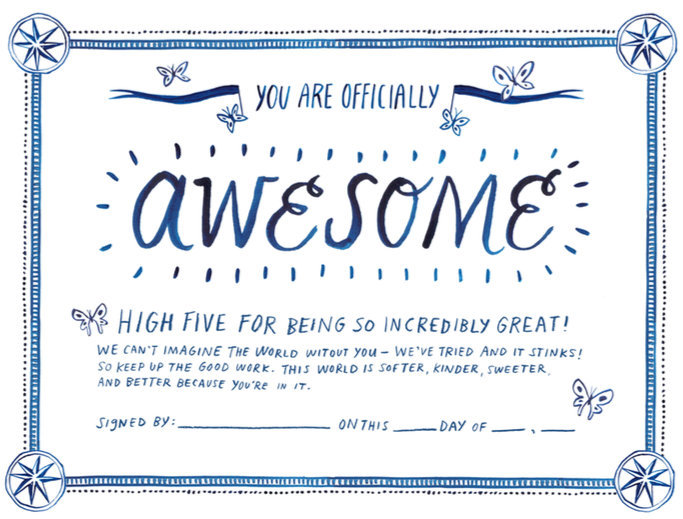 YOU ARE OFFICIALLY
AWESOME
HIGH FIVE FOR BEING SO INCREDIBLY GREAT!
WE CAN'T IMAGINE THE WORLD WITOUT YOU – WE'VE TRIED AND IT STINKS!
SO KEEP UP THE GOOD WORK. THIS WORLD IS SOFTER, KINDER, SWEETER,
AND BETTER BECAUSE YOU'RE IN IT.
SIGNED BY: ____________ ON THIS _____ DAY OF ____, ____